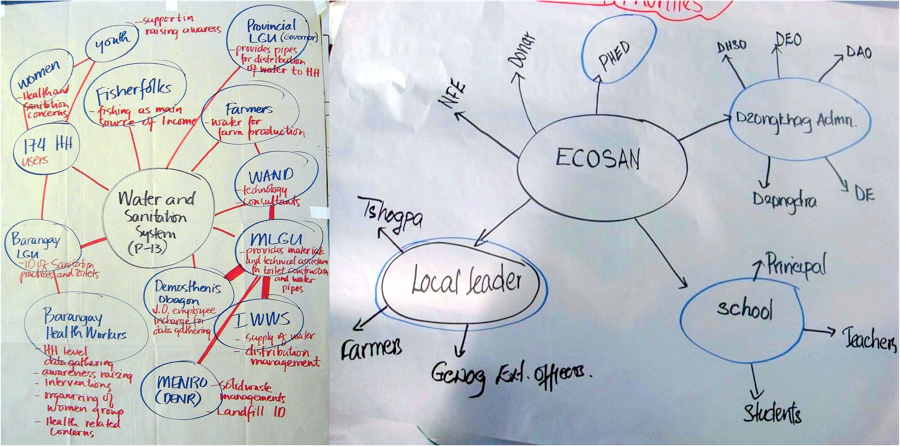 youth
- support in
raising awaress
women
- Health and
sanitation
concerns
Provincial
LGU (Governor)
- provides pipes
for distribution
of water to HH
Fisherfolks
- fishing as main
source of Income
Farmers
- water for
farm production
174 HH
users
WAND
- technology
consultants
Water and
Sanitation
System
(P-13)
Barangay
LGU
- ID of Sanitation
practices and toilets
MLGU
- provides materials
and technical assistance
in toilet construction
and water
pipes
Demosthenis
Obagon
J.O. employee
incharge for
data gathering
IWWS
- supply of water
- distribution
management
Barangay
Health Workers
- HH level
data gathering
- awareness raising
- Interventions
- organizing of
women group
- Health related
concerns
MENRO
(DENR)
- solid waste
managements
- Landfill ID
NFE
Donar
PHED
DHSO
DEO
DAO
Dzongkhag Admn.
DE
ECOSAN
Tshogpa
Local leader
Farmers
Gewog Ext. Officers.
School
Principal
Teachers
Students